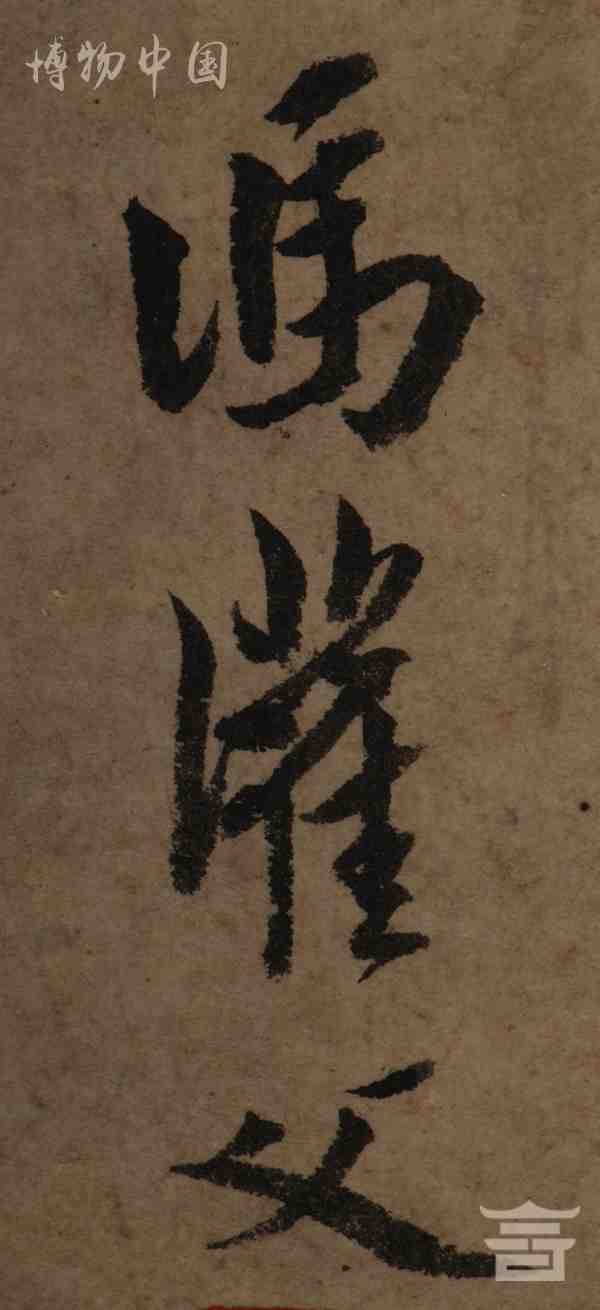 博物中国
馮 父